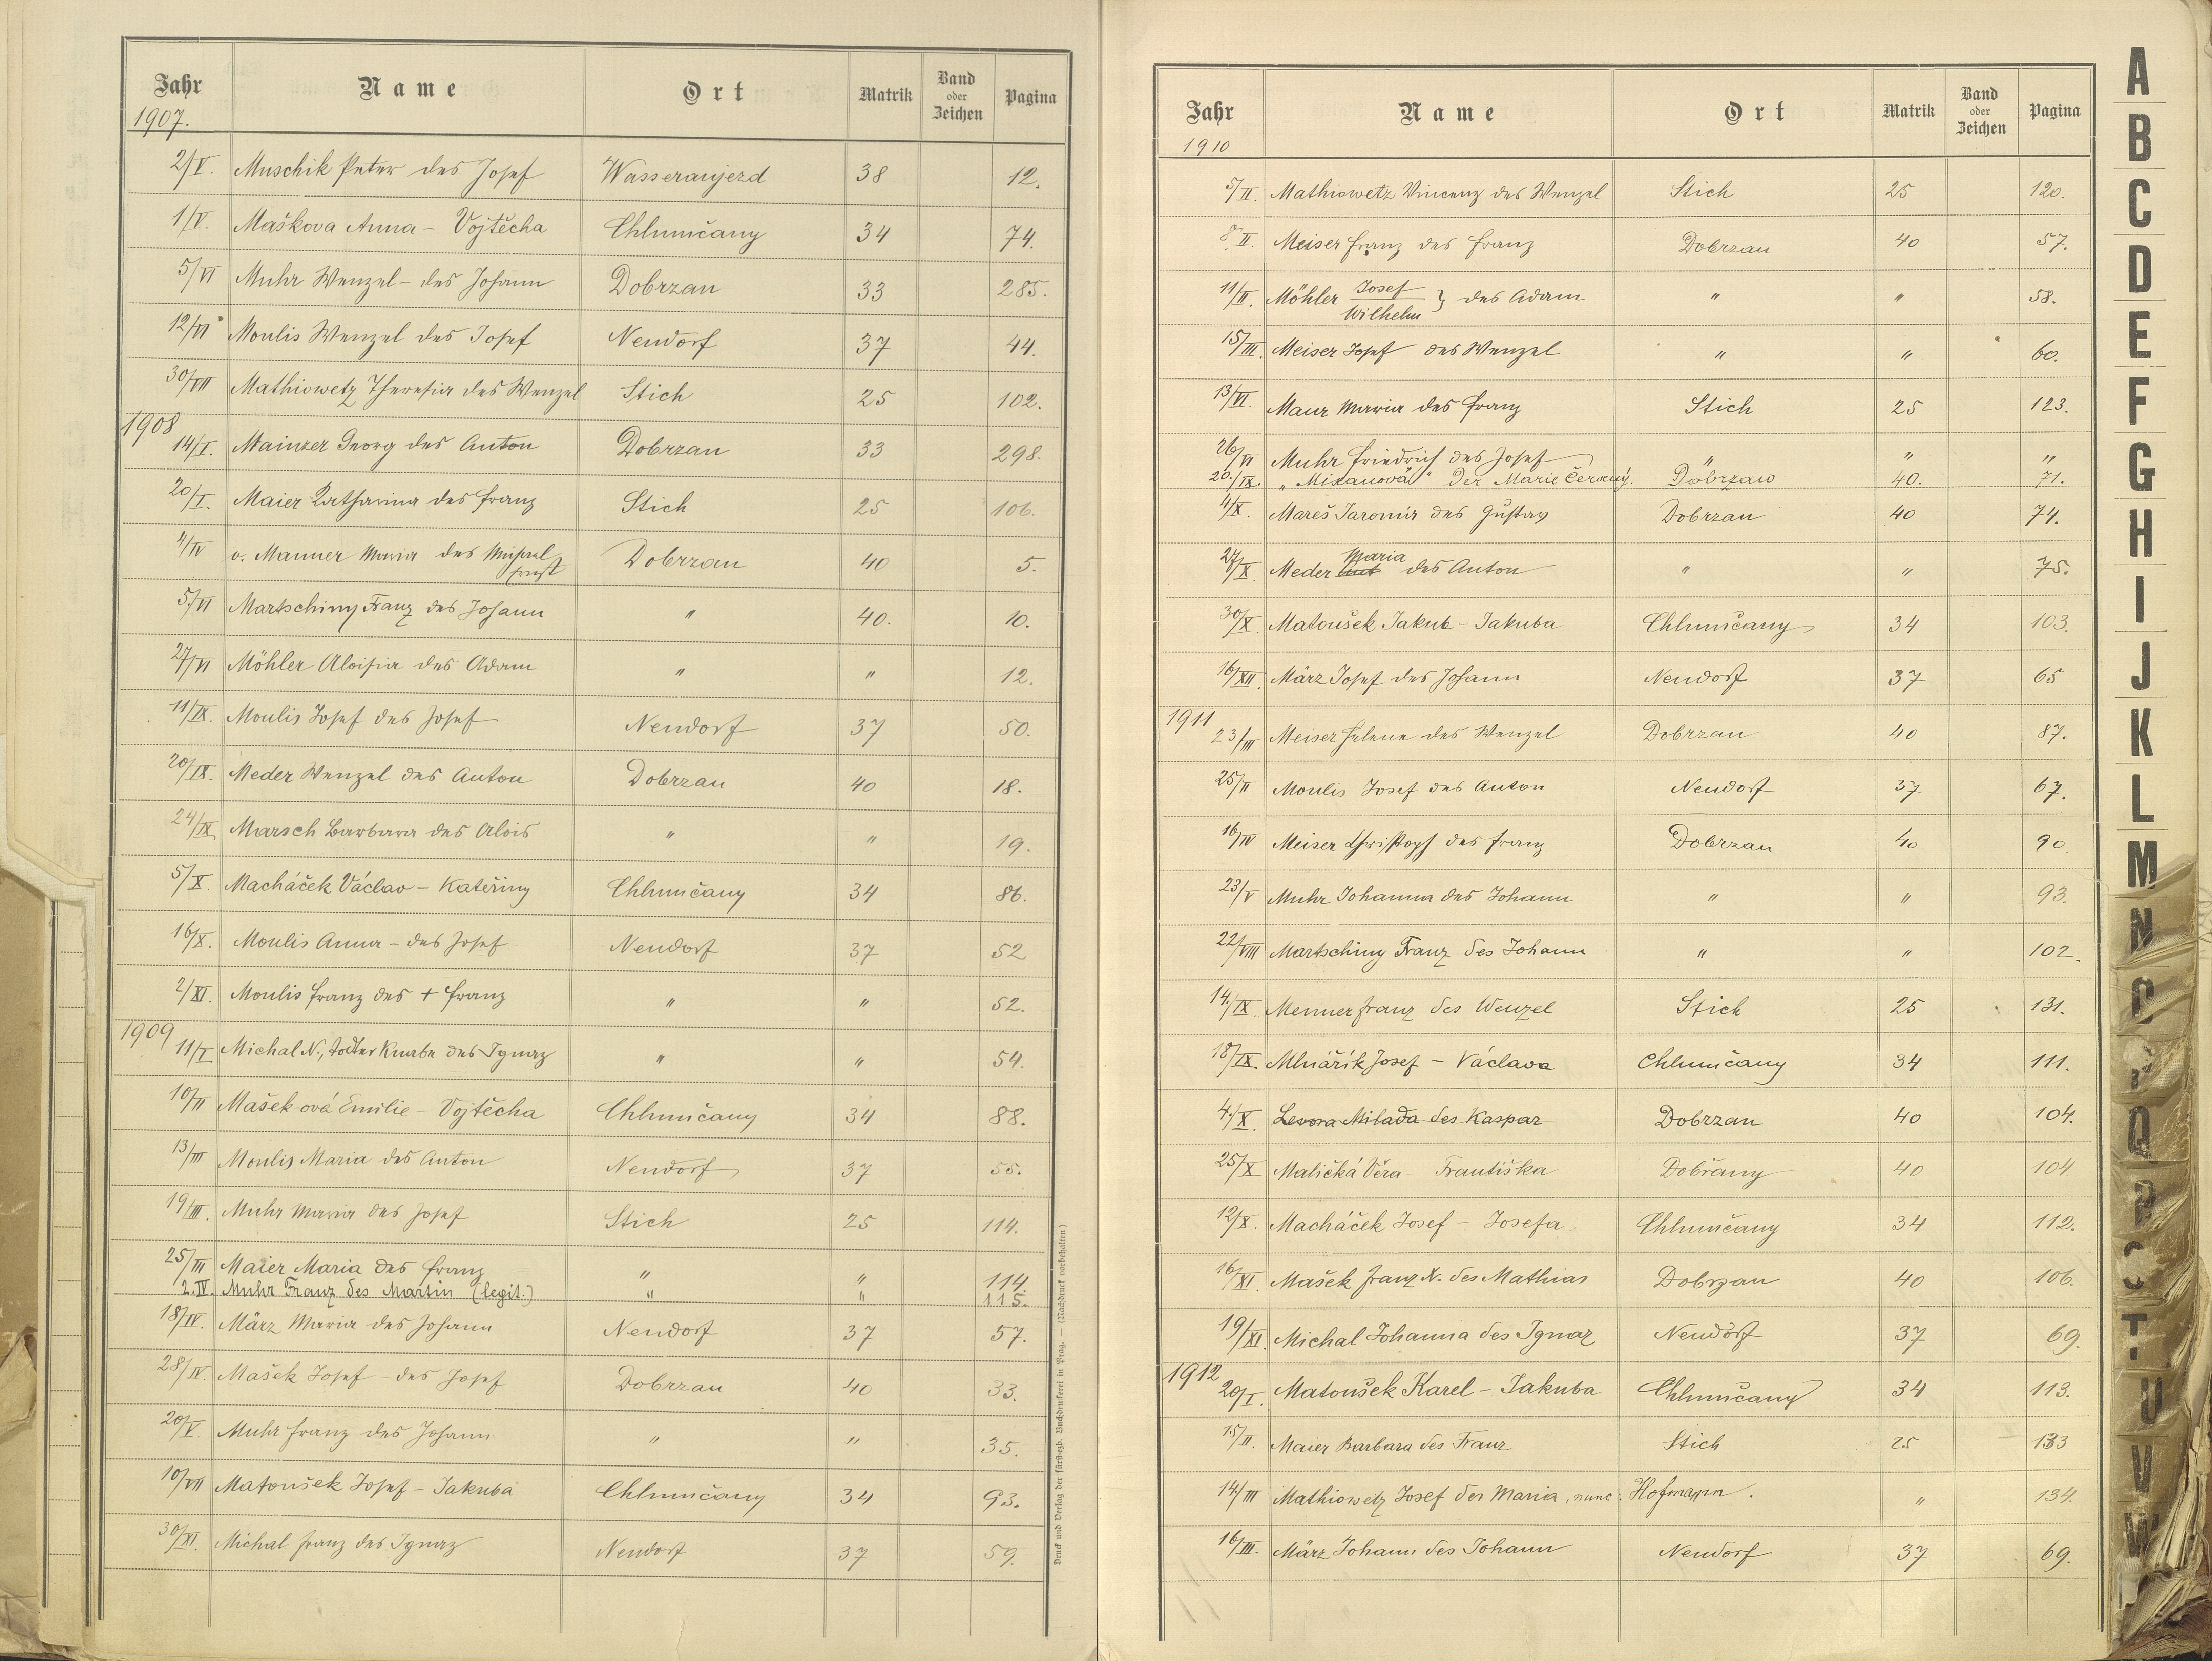 Jahr Name Ort Matrik Band oder Zeichen Pagina
1907.
2/V. Muschik Peter des Josef Wasseraujezd 38 12.
1/V. Maškova Anna - Vojtěcha Chlumčany 34 74.
5/VI Muhr Wenzel - des Johann Dobrzan 33 285.
12/VI Moulis Wenzel des Josef Neudorf 37 44.
30/VIII Mathiowetz Theresia des Wenzel Stich 25 102.
1908
14/I. Mainzer Georg des Anton Dobrzan 33 298.
20/I. Maier Katharina des Franz Stich 25 106.
4/IV v. Manner Maria des Dobrzan 40 5.
Ernst
5/VI Martschiny Franz des Johann " 40. 10.
27/VI Möhler Aloisia des Adam " " 12.
11/IX. Moulis Josef des Josef Neudorf 37 50.
20/IX. Meder Wenzel des Anton Dobrzan 40 18.
24/IX Marsch Barbara des Alois " " 19.
5/X. Macháček Václav - Kateřiny Chlumčany 34 86.
16/X. Moulis Anna - des Josef Neudorf 37 52
2/XI. Moulis Franz des + Franz " " 52.
1909
11/I Michal N., todter Knabe des Ignaz " " 54.
10/II Mašek-ová Emilie - Vojtěcha Chlumčany 34 88.
13/III Moulis Maria des Anton Neudorf 37 55.
19/III. Muhr Maria des Josef Stich 25 114.
25/III Maier Maria des Franz " " 114.
2.IV. Muhr Franz des Martin (legit.) " " 115.
18/IV. März Maria des Johann Neudorf 37 57.
28/IV. Mašek Josef - des Josef Dobrzan 40 33.
20/V. Muhr Franz des Johann " " 35.
10/VII Matoušek Josef - Jakuba Chlumčany 34 93.
30/XI. Michal Franz des Ignaz Neudorf 37 59.
Druck und Verlag der fürsterzb. Buchdruckerei in Prag. — (Nachdruck vorbehalten.)
Jahr Name Ort Matrik Band oder Zeichen Pagina
1910
5/II. Mathiowetz Vincenz des Wenzel Stich 25 120.
8/II. Meiser Franz des Franz Dobrzan 40 57.
11/II. Möhler Josef } des Adam " " 58.
Wilhelm
15/III. Meiser Josef des Wenzel " " 60.
13/VI. Maur Maria des Franz Stich 25 123.
26/VI Muhr Friedrich des Josef " " "
20./IX. "Mixanová" Der Marie Červený. Dobrzan 40. 71.
4/X. Mareš Jaromír des Gustav Dobrzan 40 74.
27/X Meder Maria des Anton " " 75.
30/X. Matoušek Jakub - Jakuba Chlumčany 34 103.
16/XII. März Josef des Johann Neudorf 37 65
1911
23/III Meiser Helene des Wenzel Dobrzan 40 87.
25/II Moulis Josef des Anton Neudorf 37 67.
16/IV Meiser Christoph des Franz Dobrzan 40 90.
23/V Muhr Johanna des Johann " " 93.
22/VIII Martschiny Franz des Johann " " 102.
14./IX. Menner Franz des Wenzel Stich 25 131.
18/IX. Mlnářík Josef - Václava Chlumčany 34 111.
4./X. Levora Milada des Kaspar Dobrzan 40 104.
25/X Maličká Věra - Františka Dobřany 40 104.
12/X. Macháček Josef - Josefa Chlumčany 34 112.
16/XI. Mašek Franz X. des Mathias Dobrzan 40 106.
19/XI. Michal Johanna des Ignaz Neudorf 37 69.
1912
20/I. Matoušek Karel - Jakuba Chlumčany 34 113.
15/II. Maier Barbara des Franz Stich 25 133
14/III Mathiowetz Josef der Maria, nunc: Hofmann. " 134.
16/III. März Johann des Johann Neudorf 37 69.
A
B
C
D
E
F
G
H
I
J
K
L
M
N
O
P
Q
R
S
T
U
V
W